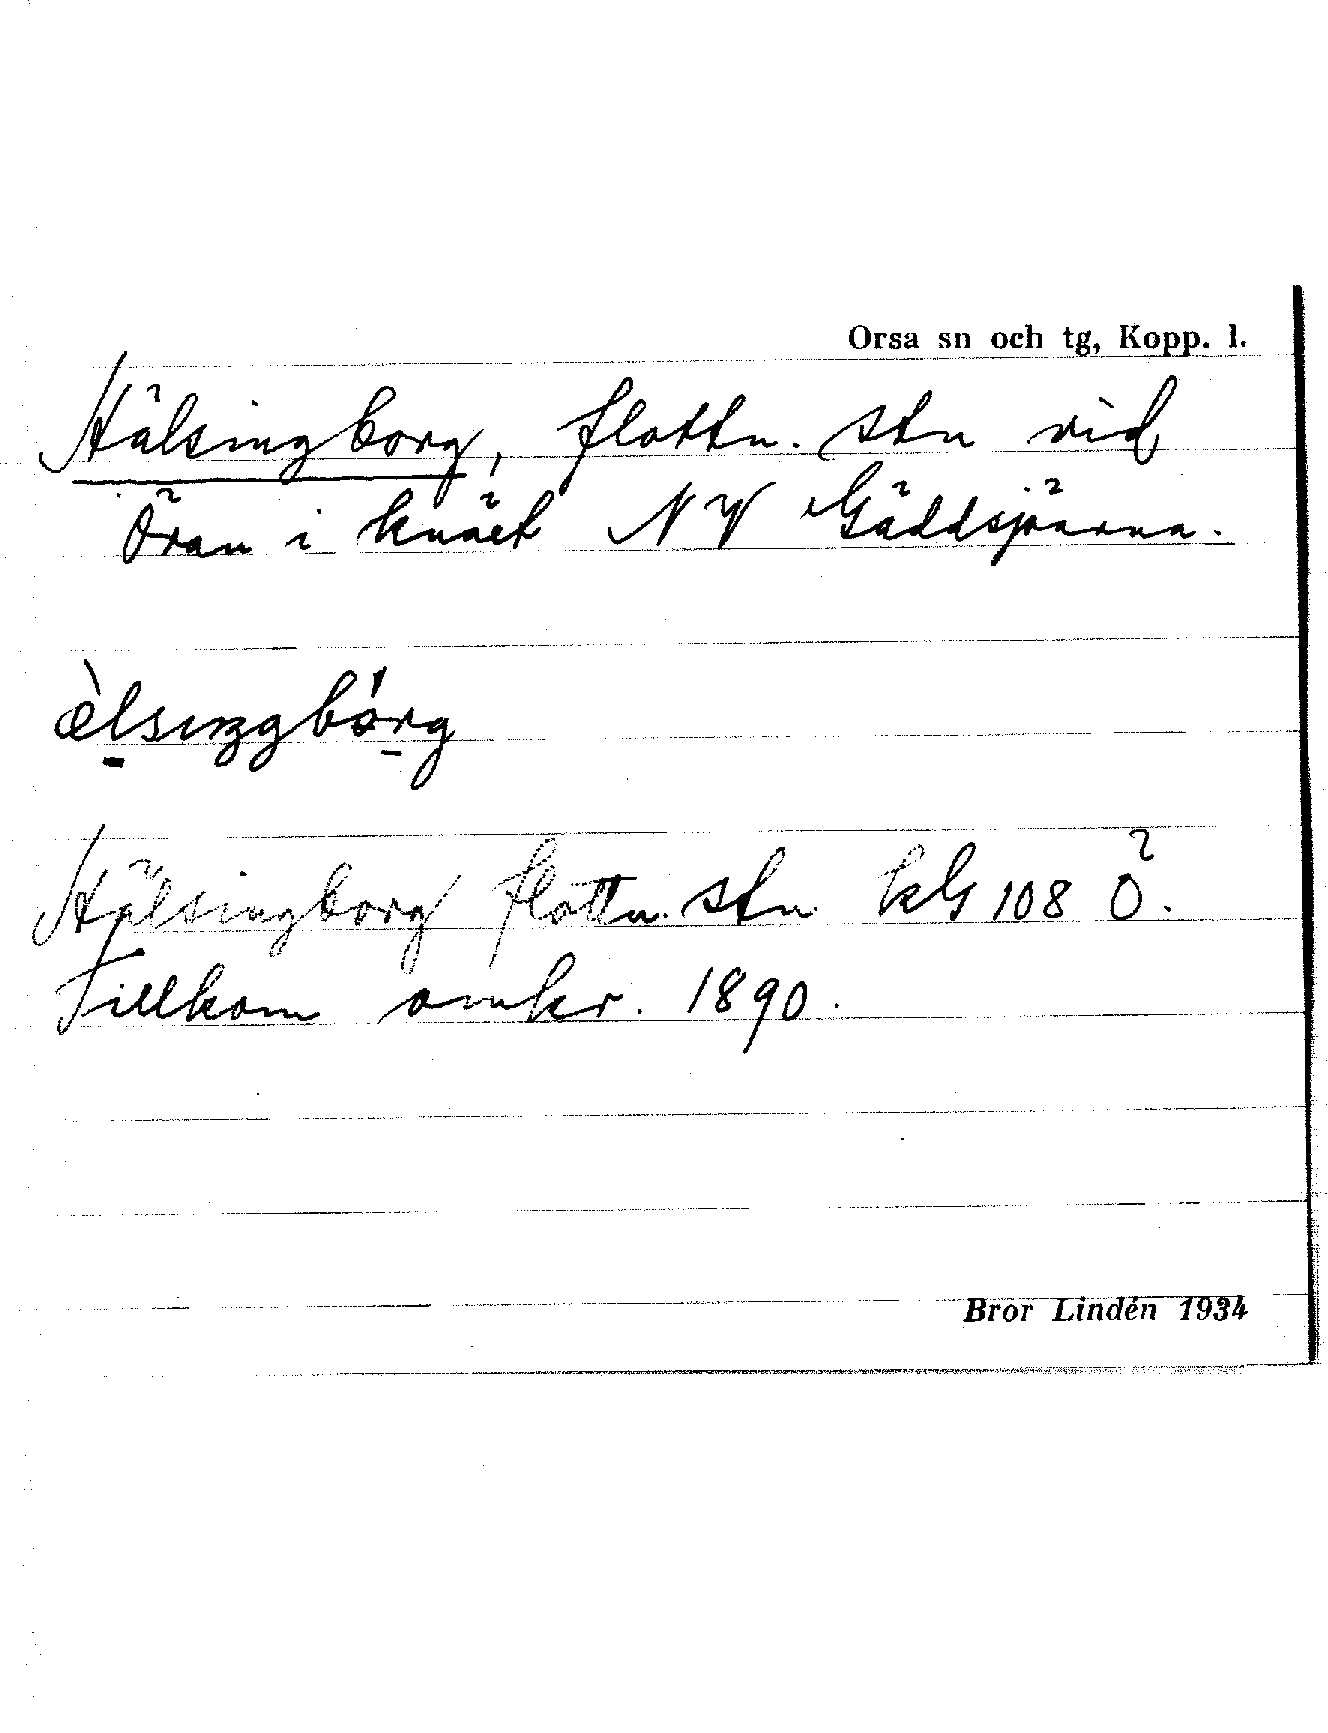 Orsa sn och tg, Kopp. l.
Hälsingborg, flottn. stn vid
Öran i knäet NV Gäddsjöarna.
æ̀lsıŋgbórg
Hälsingborg flottn. stn kbl 108 Ö.
Tillkom omkr. 1890.
Bror Lindén 1934